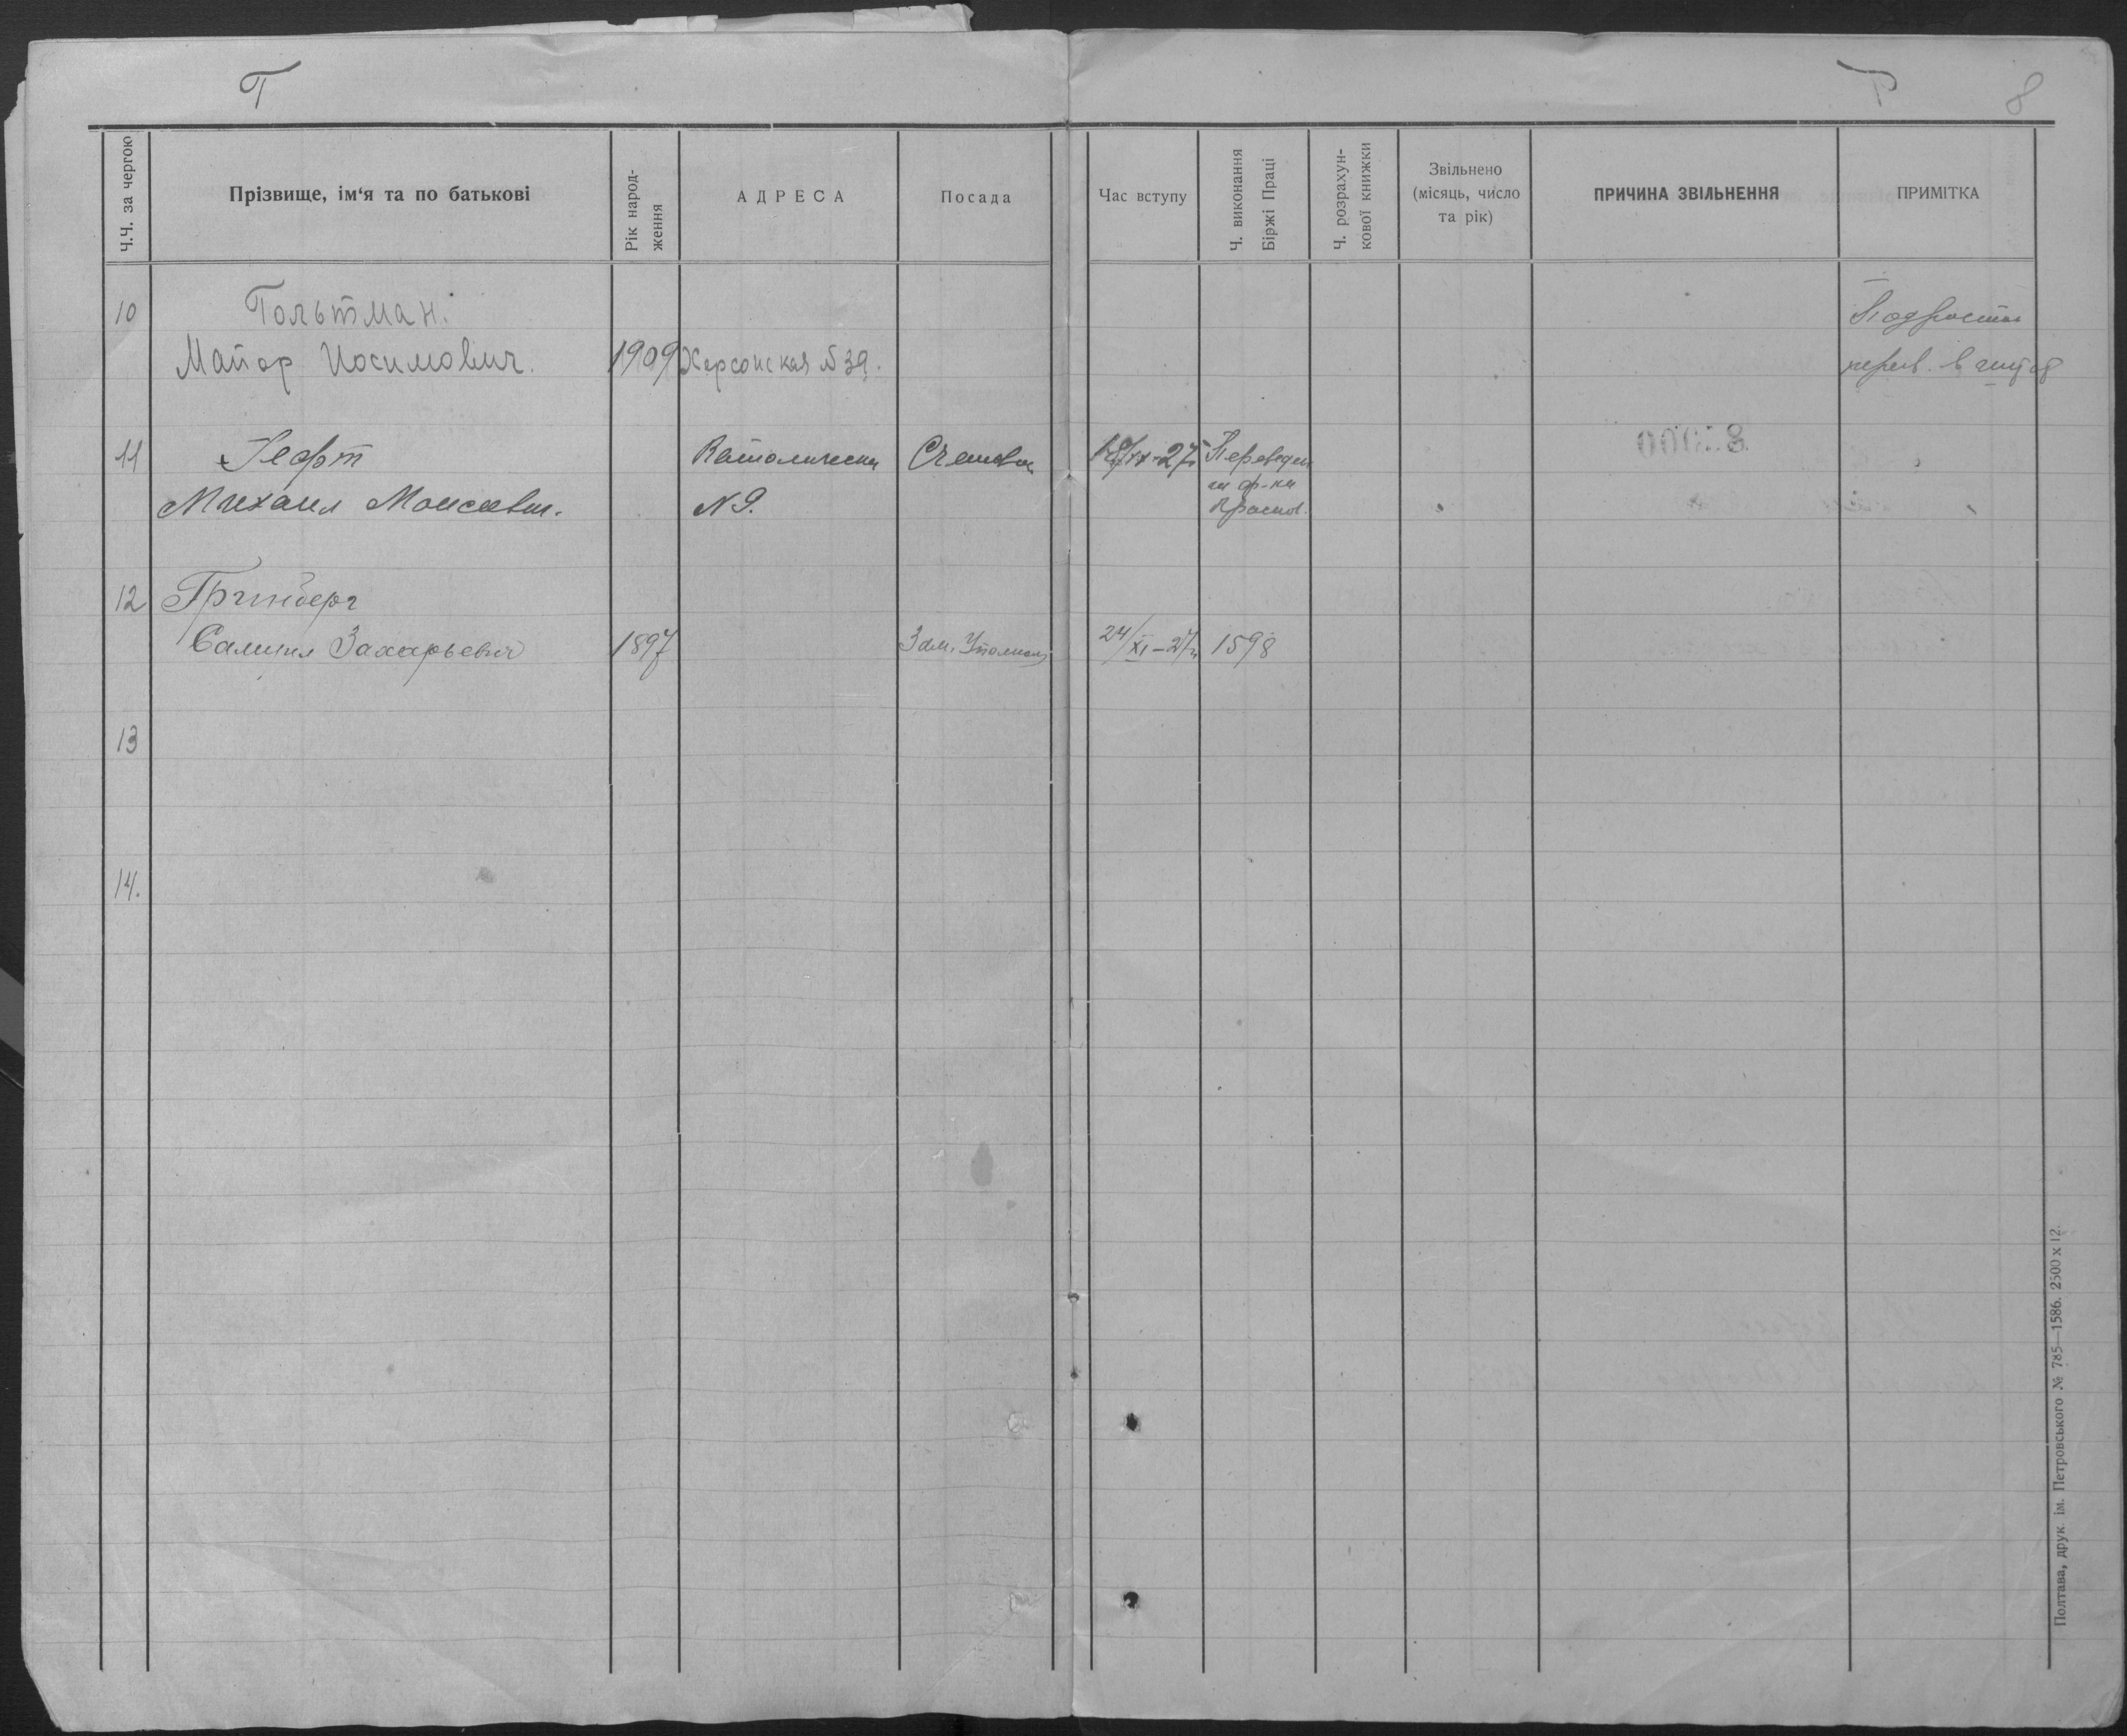 Г
Г
8
Ч.Ч. за чергою
Прізвище, ім'я та по батькові
Рік народ-
ження
АДРЕСА
Посада
Час вступу
Ч. виконання
Біржі Праці
Ч. розрахун-
кової книжки
Звільнено
(місяць, число
та рік)
ПРИЧИНА ЗВІЛЬНЕННЯ
ПРИМІТКА
10
Гольтман.
Майор Иосимович.
1909
Херсонская №39.
Подросток
перев. в
11
Гефт
Михаил Моисеевич.
N 9.
Счетовод
Переведен
на ф-ки
12
Гринберг
Самуил Захарьевич
1897
Зам.
24/XI-27г
1598
13
14.
Полтава, друк. ім. Петровського № 785—1586. 2500 x 12.